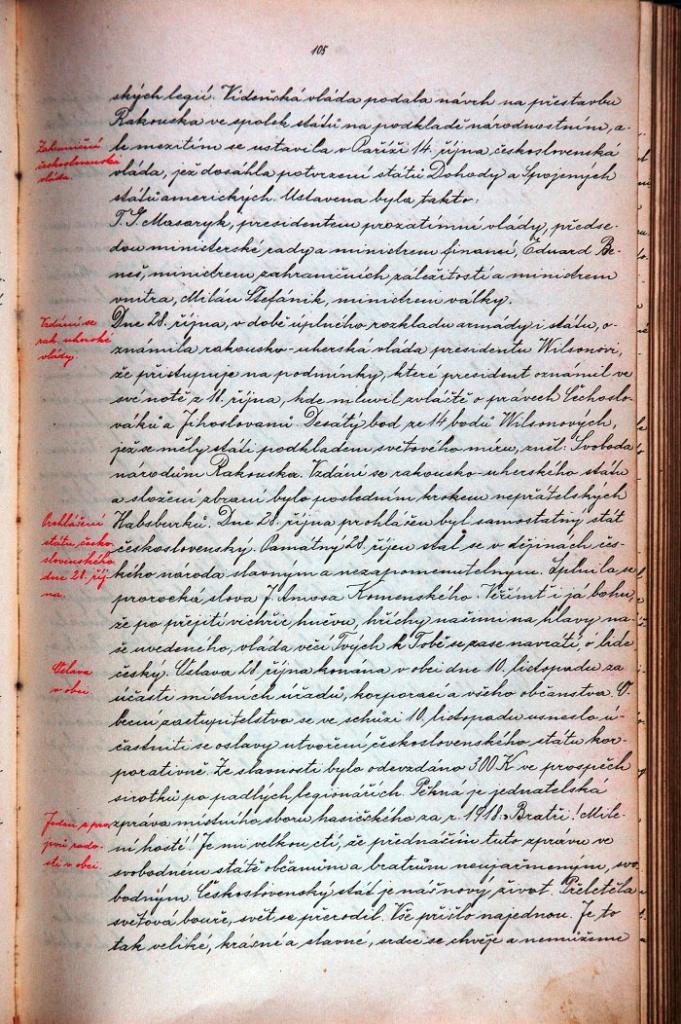 105
ských legií. Vídeňská vláda podala návrh na přestavbu
Rakouska ve spolek států na podkladě národnostním, a-
Zahraniční
československá
vláda.
le mezitím se ustavila v Paříži 14. října československá
vláda, jež dosáhla potvrzení států Dohody a Spojených
států amerických. Ustavena byla takto:
T. G. Masaryk, presidentem prozatímní vlády, předse-
dou ministerské rady a ministrem financí, Eduard Be-
neš, ministrem zahraničních záležitostí a ministrem
vnitra, Milán Štefánik, ministrem války.
Vzdání se
rak. uherské
vlády.
Dne 28. října, v době úplného rozkladu armády i státu, o-
známila rakousko-uherská vláda presidentu Wilsonovi,
že přistupuje na podmínky, které president oznámil ve
své notě z 18. října, kde mluvil zvláště o právech Čechoslo-
váků a Jihoslovanů. Desátý bod ze 14 bodů Wilsonových,
jež se měly státi podkladem světového míru, zněl: Svoboda
národům Rakouska. Vzdání se rakousko-uherského státu
a složení zbraní bylo posledním krokem nepřátelských
Prohlášení
státu česko-
slovenského
dne 28. říj-
na.
Habsburků. Dne 28. října prohlášen byl samostatný stát
československý. Památný 28. říjen stal se v dějinách čes-
kého národa slavným a nezapomenutelným. Splnila se
prorocká slova J. Amosa Komenského. Věřímť i já bohu,
že po přejití vichřic hněvu, hříchy našimi na hlavy na-
še uvedeného, vláda věcí Tvých k Tobě se zase navrátí, ó lide
Oslava
v obci.
český. Oslava 28. října konána v obci dne 10. listopadu za
účasti místních úřadů, korporací a všeho občanstva. O-
becní zastupitelstvo se ve schůzi 10. listopadu usneslo ú-
častniti se oslavy utvoření československého státu kor-
porativně. Ze slavnosti bylo odevzdáno 300 K ve prospěch
sirotků po padlých legionářích. Pěkná je jednatelská
Jeden z pro-
jevů rado-
sti v obci.
zpráva místního sboru hasičského za r. 1918: Bratři! Mile-
ní hosté! Je mi velkou ctí, že přednáším tuto zprávu ve
svobodném státě občanům a bratrům neujařmeným, svo-
bodným. Československý stát je náš nový život. Přeletěla
světová bouře, svět se přerodil. Vše přišlo najednou. Je to
tak veliké, krásné a slavné, srdce se chvěje a nemůžeme